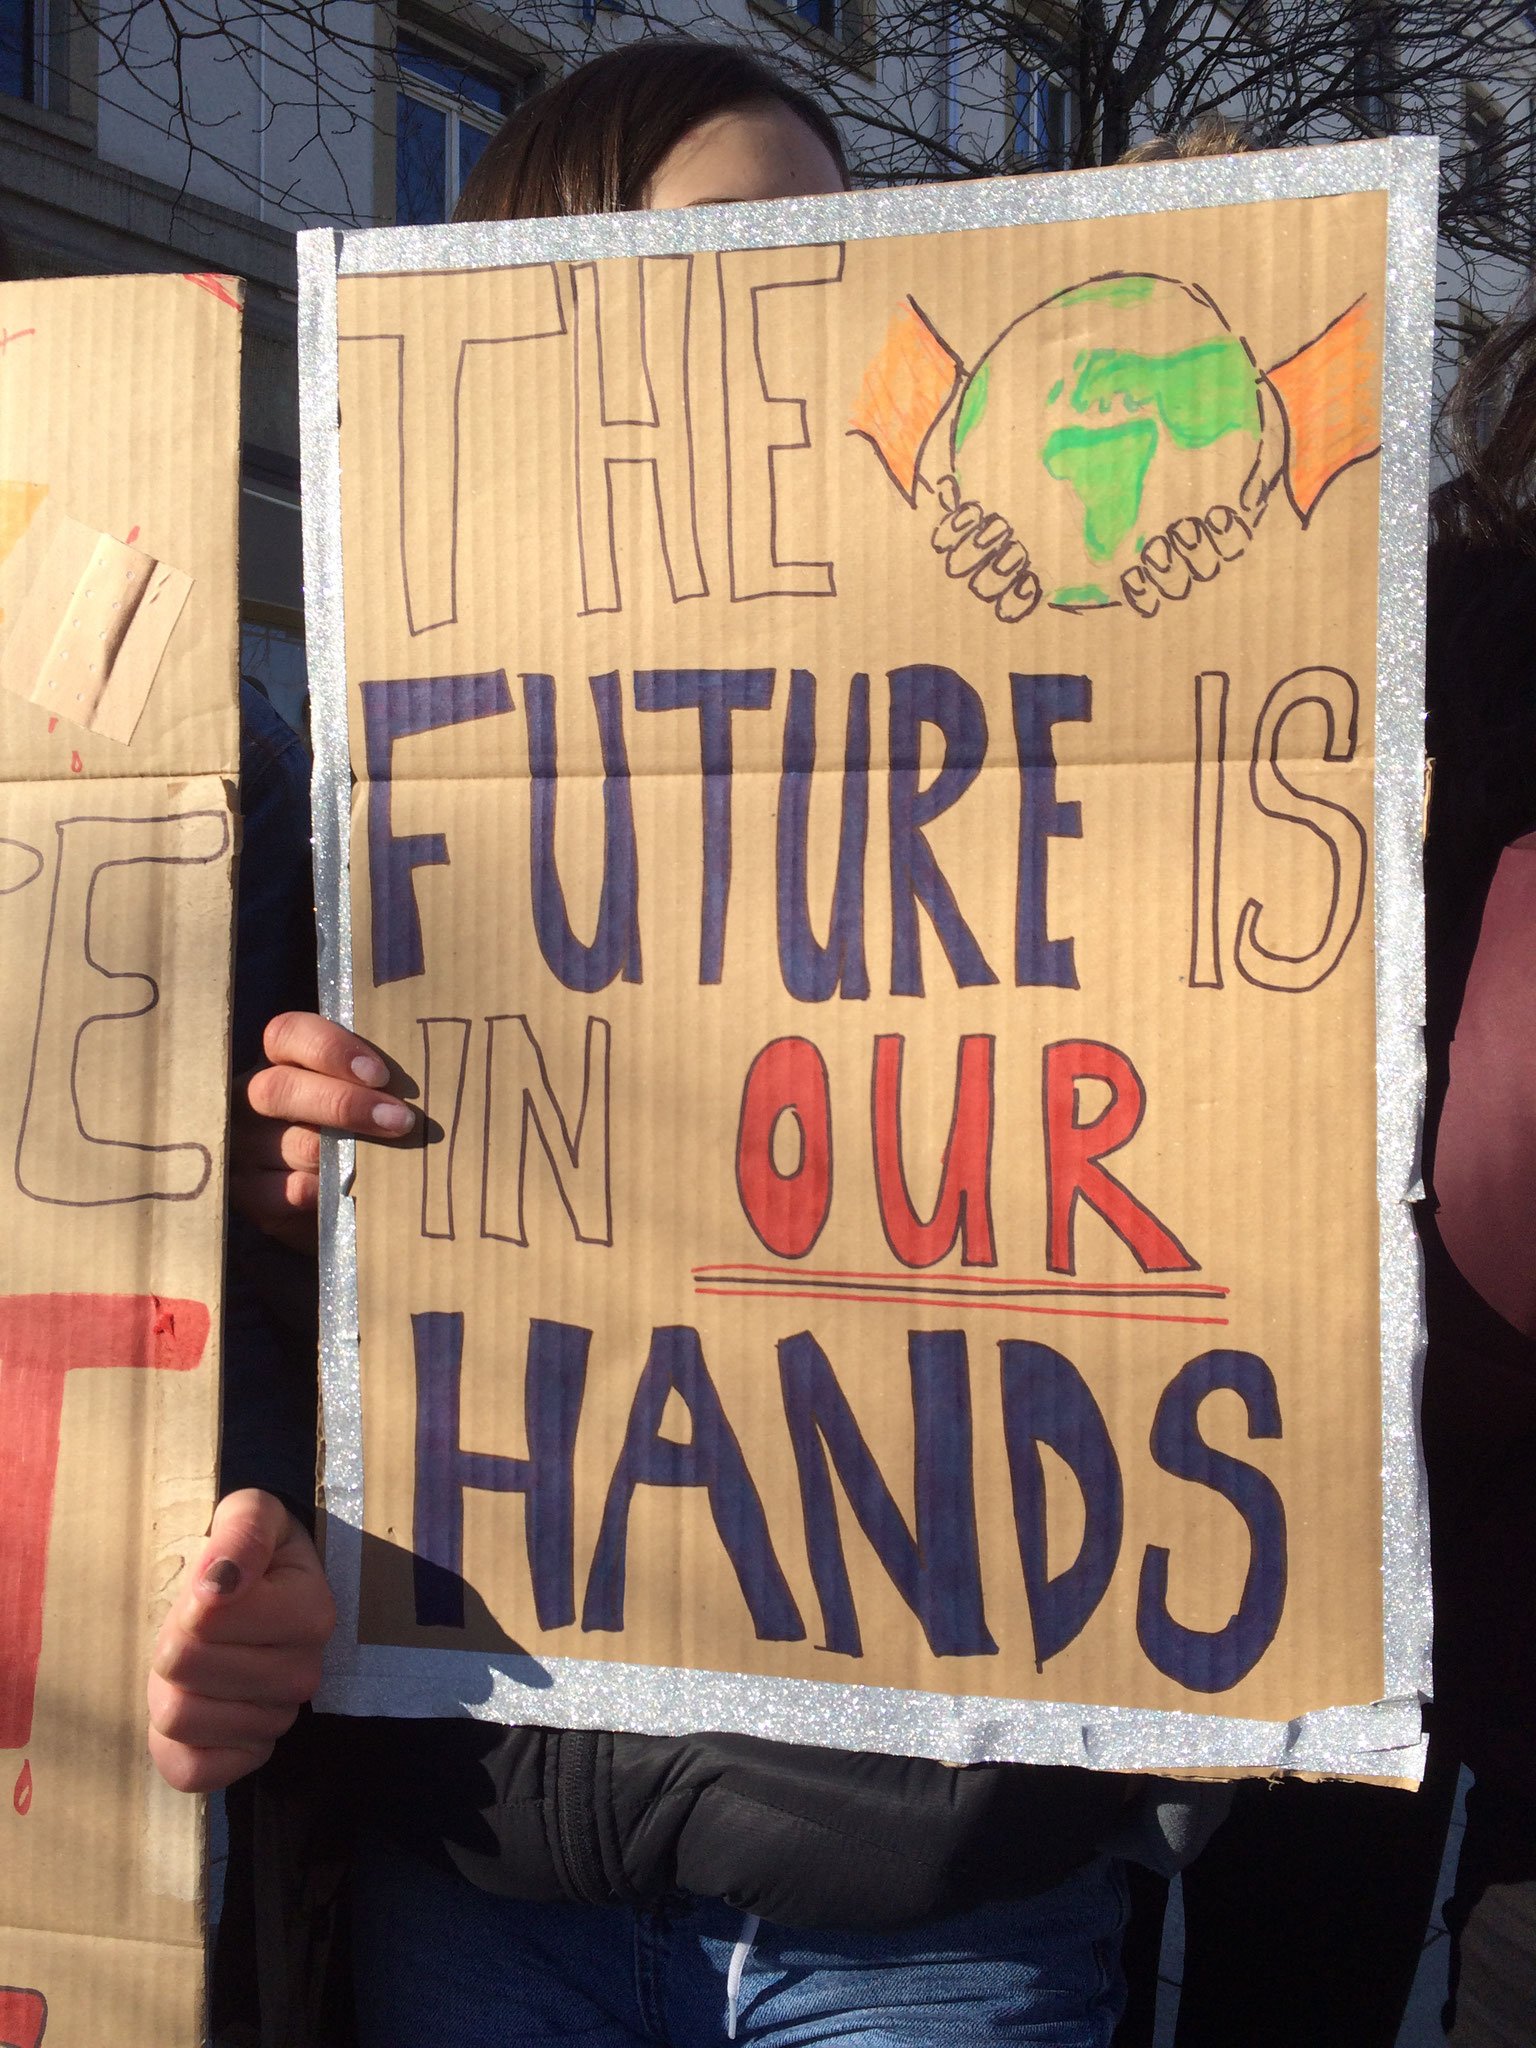 THE
FUTURE IS
IN OUR
HANDS
E
T